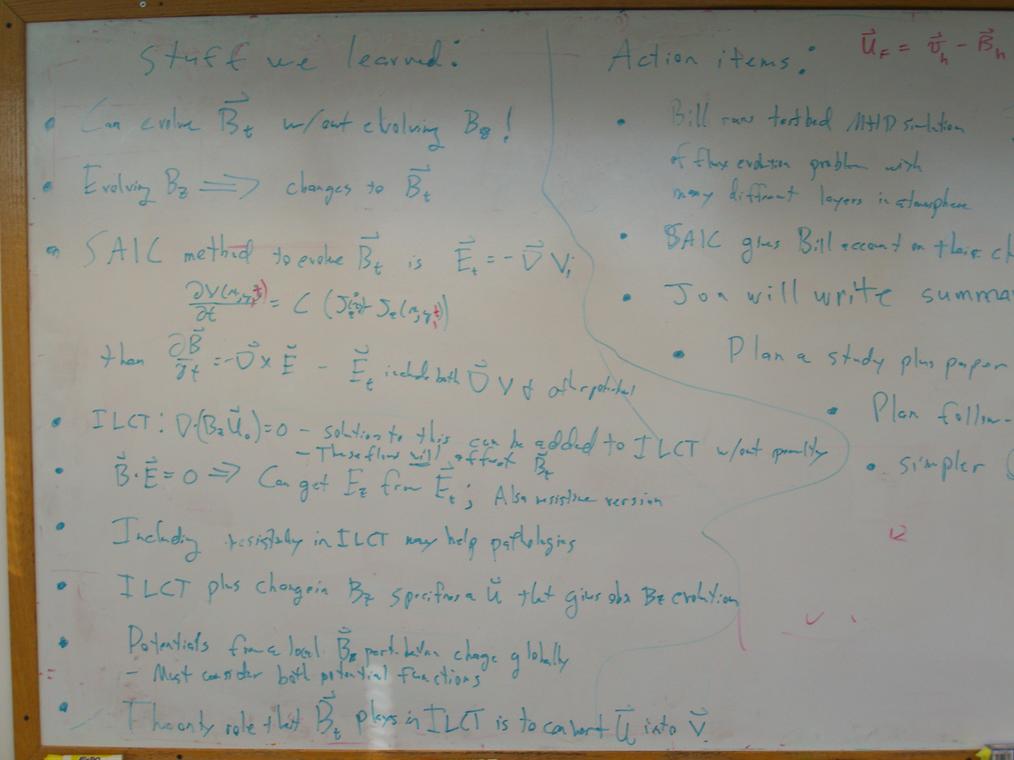 Stuff we learned:
• Can evolve B⃗t w/out evolving Bz!
• Evolving Bz ⟹ changes to B⃗t
• SAIC method to evolve B⃗t is E⃗t = -∇⃗ V,
∂V(x,y,t)/∂t = C (Jz Jz(x,y,t))
then ∂B⃗/∂t = -∇⃗ × E⃗ - E⃗t include both ∇⃗ V & other potential
• ILCT: ∇·(Bz U⃗o) = 0 - solution to this can be added to ILCT w/out penalty
- These flows will affect B⃗t
• B⃗·E⃗ = 0 ⟹ Can get Ez from E⃗t; Also resistive version
• Including resistivity in ILCT may help pathologies
• ILCT plus change in Bz specifies a u⃗ that gives obs Bz evolution
• Potentials from a local Bz perturbation change globally
- Must consider both potential functions
• The only role that B⃗t plays in ILCT is to convert U⃗ into V⃗
Action items:
U⃗F = v⃗h - B⃗h
• Bill runs testbed MHD simulation
of flux evolution problem with
many different layers in atmosphere
• SAIC gives Bill account on their
• Jon will write
• Plan a study plus paper
• Plan follow-
• simpler
12